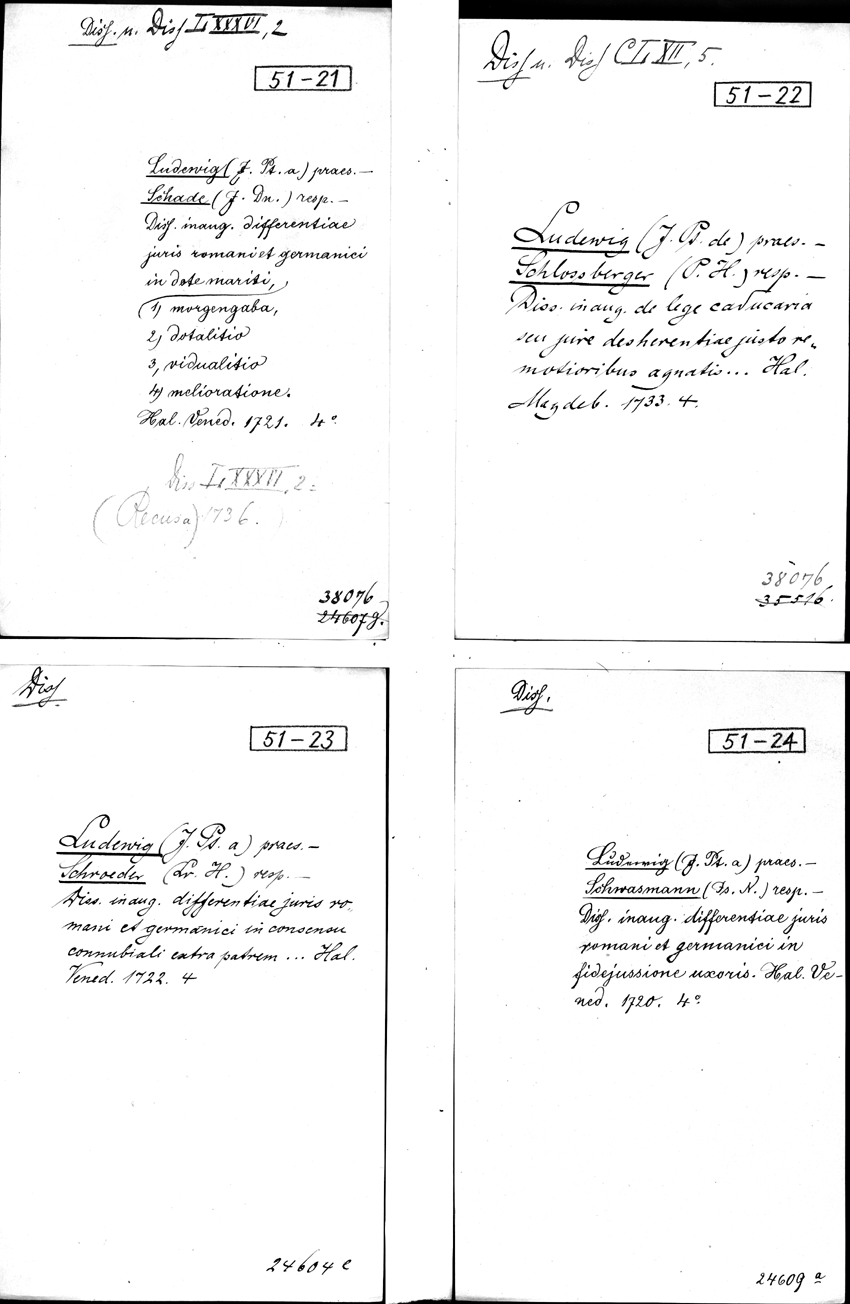 Diss. u. Diss LXXXVI, 2
51-21
Ludewig (J. Pt. a) praes. —
Schade (J. Dn.) resp. —
Diss. inaug. differentiae
juris romani et germanici
in dote mariti,
(1) morgengaba,
2) dotalitio
3, vidualitio
4) melioratione.
Hal. Vened. 1721. 4°
Diss LXXXVI, 2
(Recusa) 1736.
38076
24607 g.
Diss u. Diss CLXII, 5.
51-22
Ludewig (J. Pt. de) praes. —
Schlossberger (P. H.) resp. —
Diss. inaug. de lege caducaria
seu jure desherentiae justo re„
motioribus agnatis... Hal.
Magdeb. 1733. 4.
38076
35516.
Diss
51-23
Ludewig (J. Pt. a) praes. —
Schroeder (Lr. H.) resp. —
Diss. inaug. differentiae juris ro„
mani et germanici in consensu
connubiali extra patrem ... Hal.
Vened. 1722. 4
24604 c
Diss.
51-24
Ludewig (J. Pt. a) praes. —
Schwasmann (Ds. N.) resp. —
Diss. inaug. differentiae juris
romani et germanici in
fidejussione uxoris. Hal. Ve-
ned. 1720. 4°
24609 a